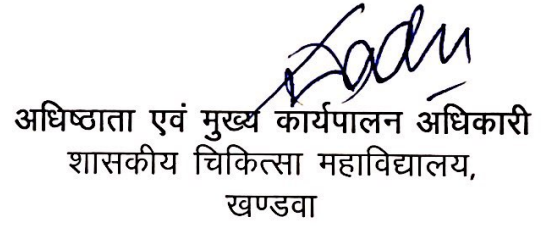 अधिष्ठाता एवं मुख्य कार्यपालन अधिकारी
शासकीय चिकित्सा महाविद्यालय,
खण्डवा